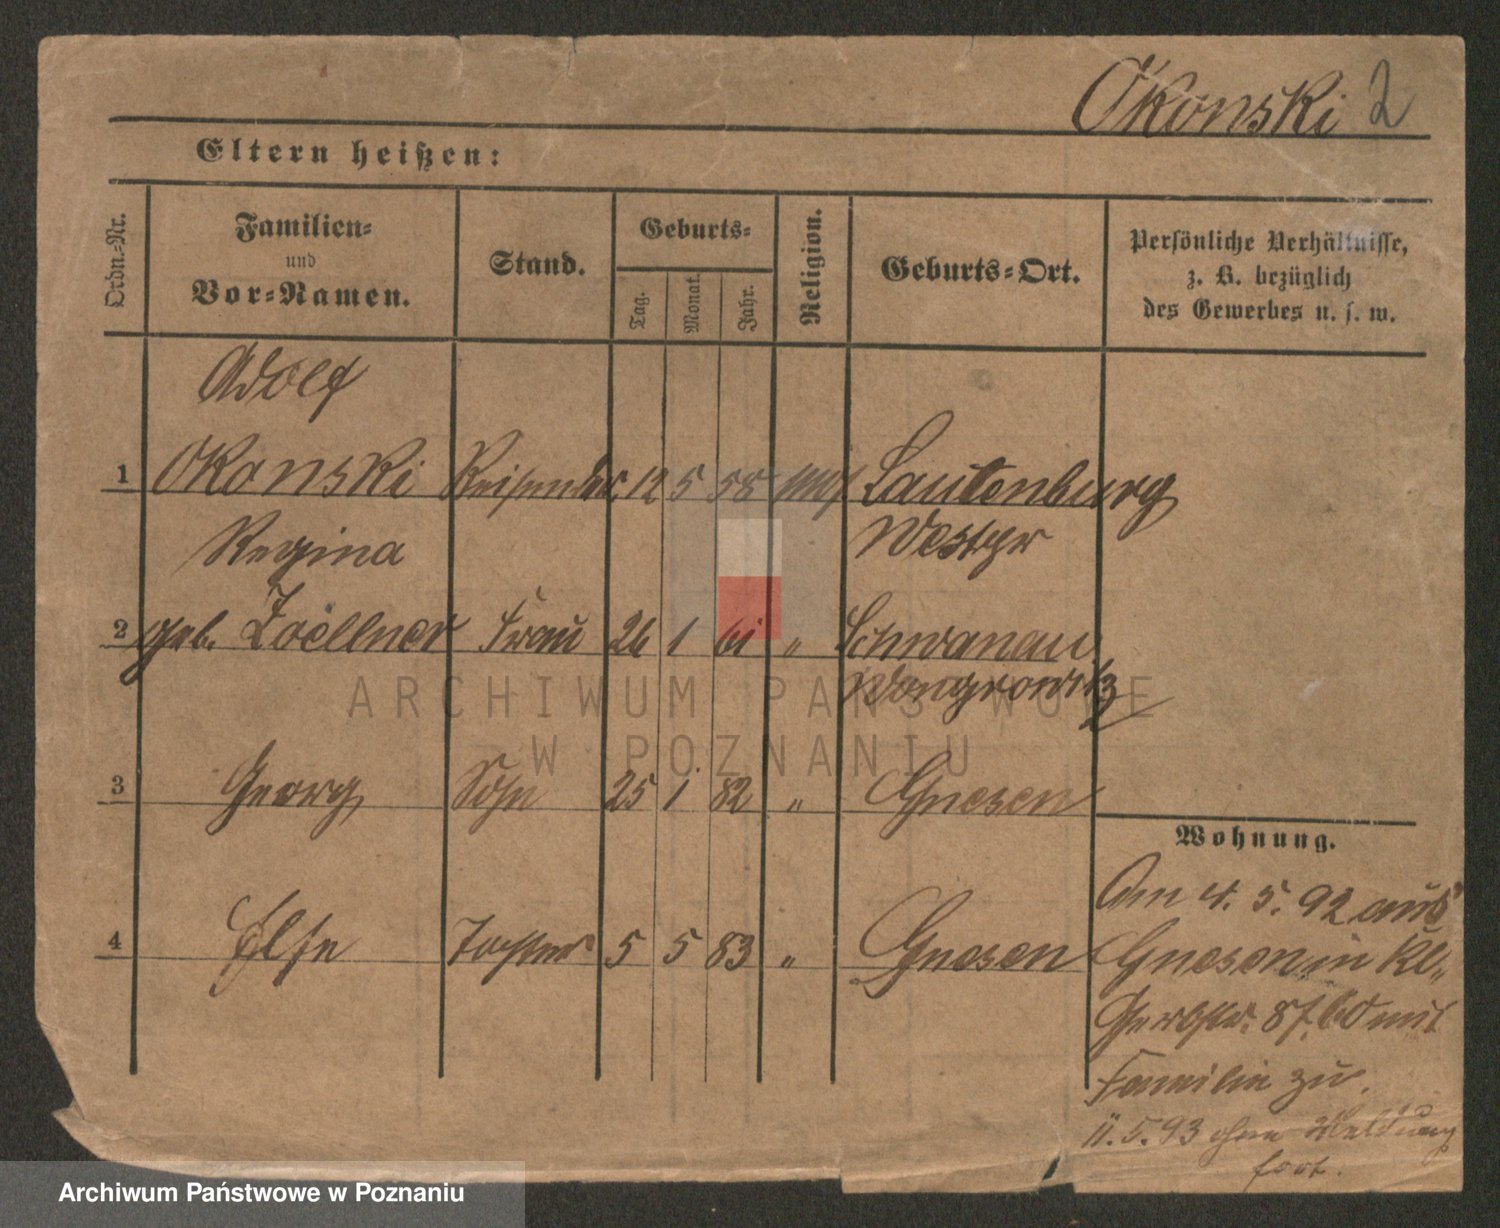 Okonski 2
Eltern heißen:
Ordn.-Nr.
Familien-
und
Vor-Namen.
Stand.
Geburts-
Tag.
Monat.
Jahr.
Religion.
Geburts-Ort.
Persönliche Verhältnisse,
z. B. bezüglich
des Gewerbes u. s. w.
Adolf
1 Okonski Reisender 12 5 58 mos Lautenburg
Regina Westpr
2 geb. Zoellner Frau 26 1 61 " Schwanau
Wongrowitz
3 Georg Sohn 25 1 82 " Gnesen
4 Else Tochter 5 5 83 " Gnesen
Wohnung.
Am 4. 5. 92 aus
Gnesen in Kl.
Gerbstr. mit
Familie zu.
11. 5. 93 ohne Meldung
fort.
ARCHIWUM PAŃSTWOWE
W POZNANIU
Archiwum Państwowe w Poznaniu